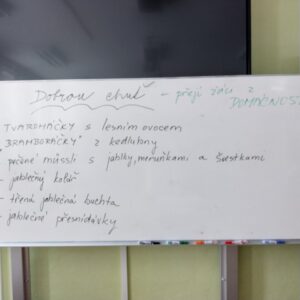 Dobrou chuť – přejí žáci z DOMÁCNOSTI
TVAROHÁČKY s lesním ovocem
"BRAMBORÁČKY" z kedlubny
- pečené müssli s jablky, meruňkami a švestkami
- jablečný koláč
- třená jablečná buchta
- jablečné přesnídávky